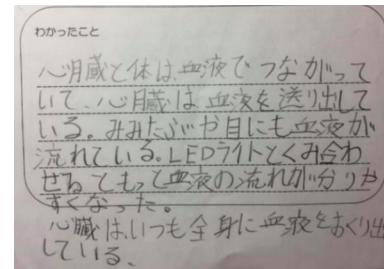 わかったこと
心臓と体は、血液でつながって
いて、心臓は血液を送り出して
いる。みみたぶや目にも血液が
流れている。LEDライトとくみ合わ
せるともって血液の流れが分りや
すくなった。
心臓は、いつも全身に血液をおくり出
している、